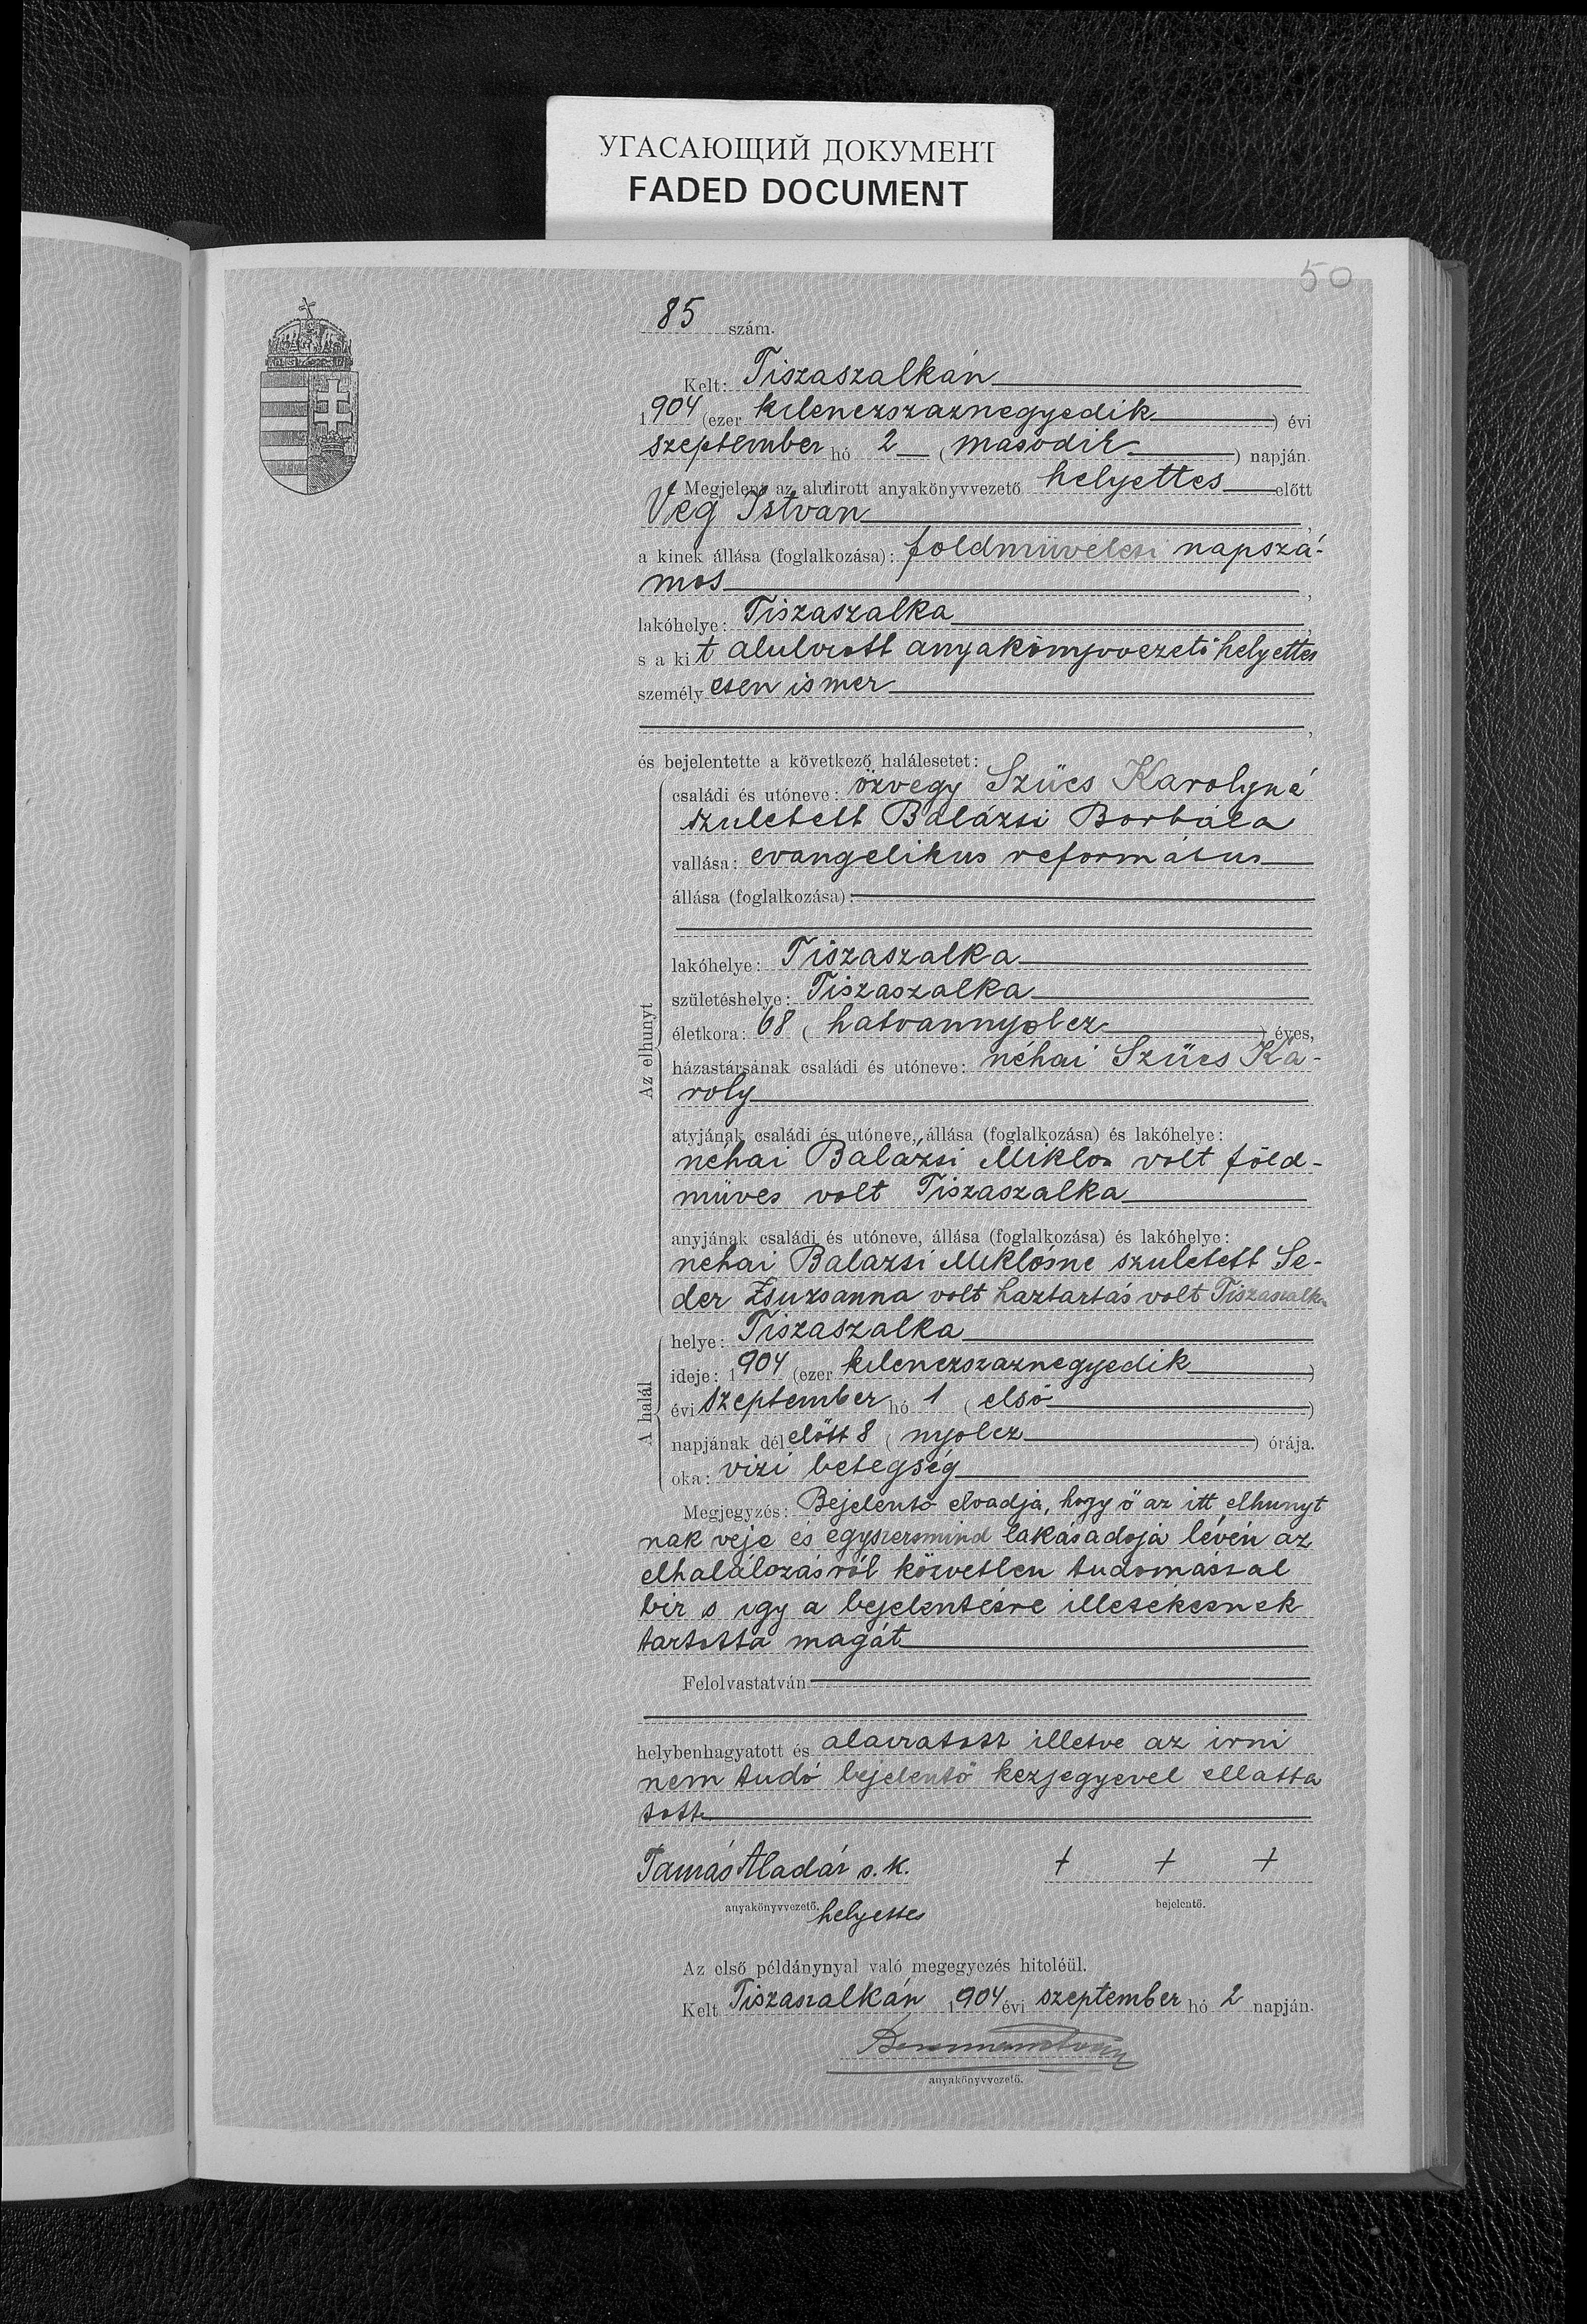 УГАСАЮЩИЙ ДОКУМЕНТ
FADED DOCUMENT
50
85 szám.
Kelt: Tiszaszalkán
1904 (ezer kilenczszaznegyedik) évi
szeptember hó 2 (masodik) napján.
Megjelent az alulirott anyakönyvvezető helyettes előtt
Vég István,
a kinek állása (foglalkozása): földmüvelési napszá-
mos,
lakóhelye: Tiszaszalka,
s a kit alulirott anyakönyvvezető helyettes
személyesen ismer
,
és bejelentette a következő halálesetet:
Az elhunyt
családi és utóneve: özvegy Szücs Karolyné
született Balázsi Borbála
vallása: evangelikus református
állása (foglalkozása):
lakóhelye: Tiszaszalka
születéshelye: Tiszaszalka
életkora: 68 (hatvannyolcz) éves,
házastársának családi és utóneve: néhai Szücs Ká-
roly
atyjának családi és utóneve, állása (foglalkozása) és lakóhelye:
néhai Balázsi Miklos volt föld-
müves volt Tiszaszalka
anyjának családi és utóneve, állása (foglalkozása) és lakóhelye:
nehai Balazsi Miklósne született Se-
der Zsuzsanna volt haztartás volt Tiszaszalka
A halál
helye: Tiszaszalka
ideje: 1904 (ezer kilenczszaznegyedik)
évi szeptember hó 1 (első)
napjának délelőtt 8 (nyolcz) órája.
oka: vizi betegség
Megjegyzés: Bejelentő eloadja, hogy ő az itt elhunyt
nak veje és egyszersmind lakásadoja lévén az
elhalálozásról közvetlen tudomással
bir s igy a bejelentésre illetékesnek
tartotta magát
Felolvastatván
helybenhagyatott és alairatott illetve az irni
nem tudó bejelentő kezjegyevel ellatta
tott
Tamás Aladár s. k. + + +
anyakönyvvezető. helyettes bejelentő.
Az első példánynyal való megegyezés hiteléül.
Kelt Tiszaszalkán 1904 évi szeptember hó 2 napján.
anyakönyvvezető.